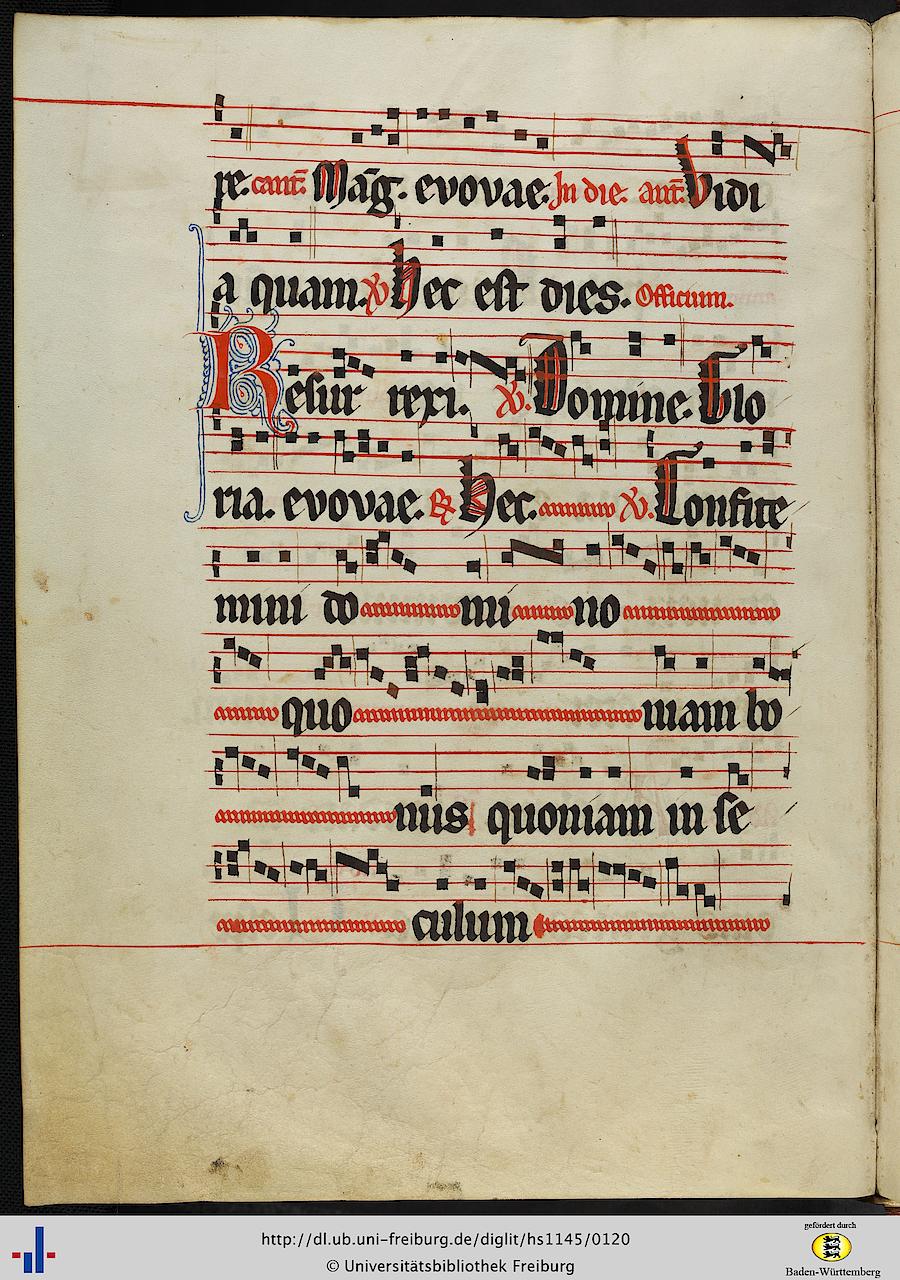 re. cant̄. Mag̃. evovae. In die. ant̄. Vidi
a quam. V. Hec est dies. Officium.
Resur rexi. V. Domine. Glo
ria. evovae. R Hec. V. Confite
mini do mi no
quo niam bo
nus quoniam in se
culum
http://dl.ub.uni-freiburg.de/diglit/hs1145/0120
© Universitätsbibliothek Freiburg
gefördert durch
Baden-Württemberg